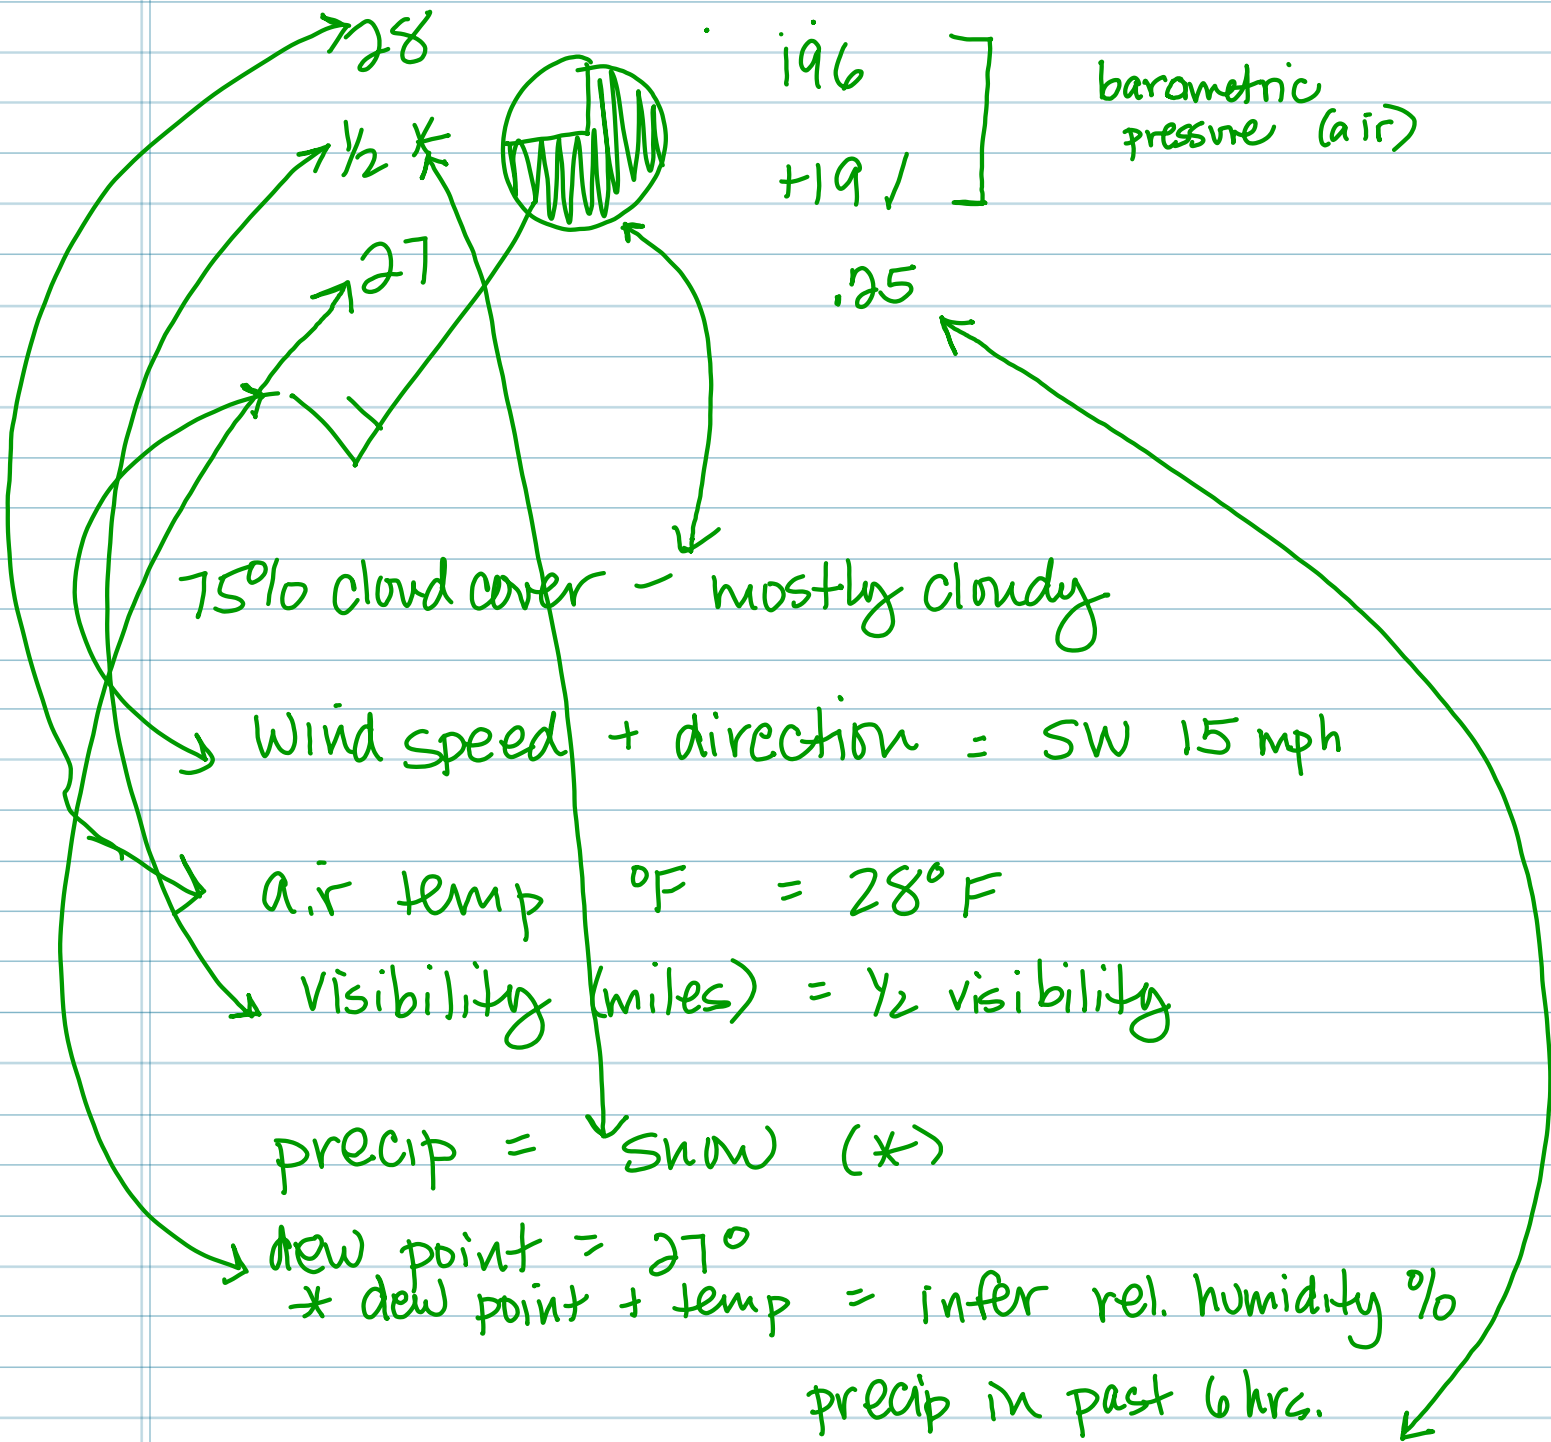 28
196
barometric
pressure (air)
1/2 *
+19/
27
.25
75% cloud cover - mostly cloudy
Wind speed + direction = SW 15 mph
air temp °F = 28° F
Visibility (miles) = 1/2 visibility
precip = Snow (*)
dew point = 27°
* dew point + temp = infer rel. humidity %
precip in past 6 hrs.